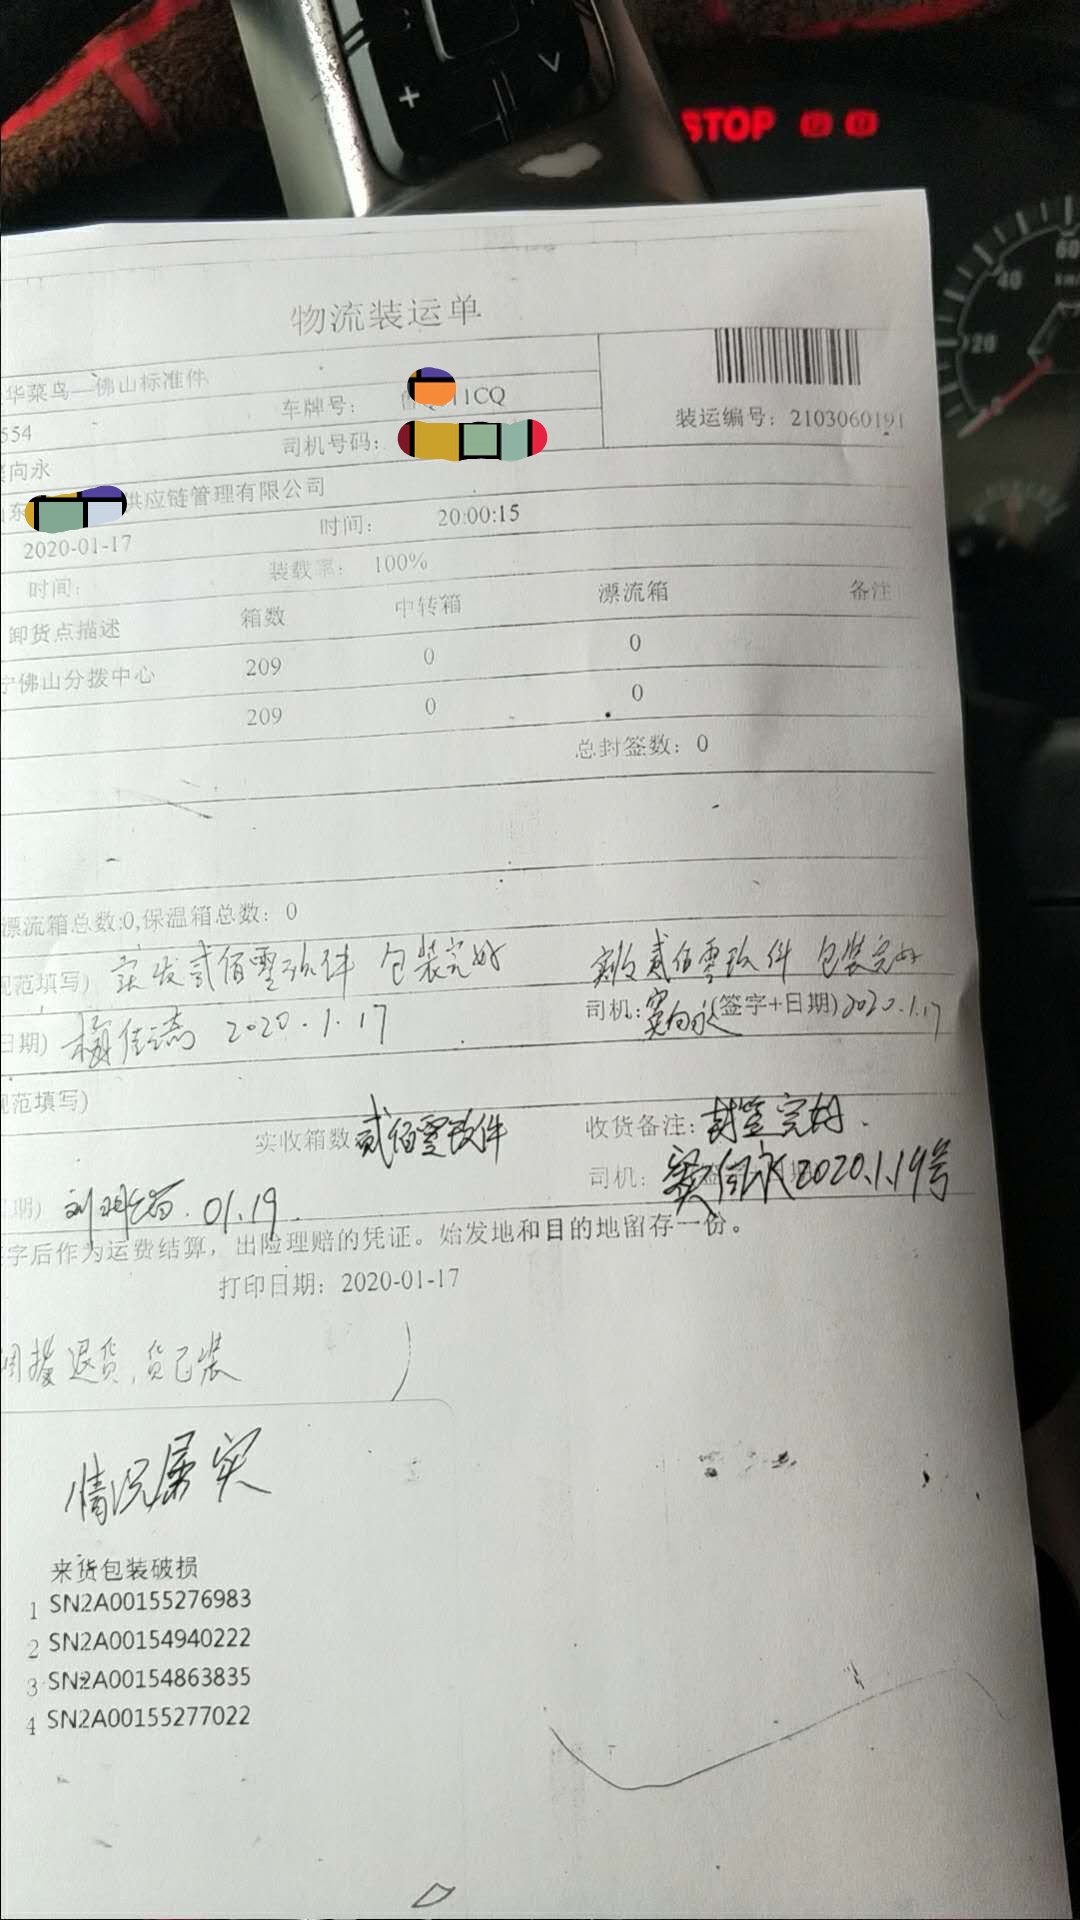 STOP
60
40
20
物流装运单
华菜鸟—佛山标准件
车牌号: 11CQ
装运编号: 2103060191
554
司机号码:
向永
供应链管理有限公司
2020-01-17 时间: 20:00:15
时间: 装载率: 100%
卸货点描述 箱数 中转箱 漂流箱 备注
佛山分拨中心 209 0 0
209 0 0
总封签数: 0
漂流箱总数:0,保温箱总数: 0
规范填写) 实发贰佰零玖件 包装完好 实收贰佰零玖件 包装完好
日期) 2020.1.17 司机: (签字+日期) 2020.1.17
规范填写)
实收箱数 贰佰零玖件 收货备注: 封签完好.
期) 01.19. 司机: 2020.1.19号
字后作为运费结算，出险理赔的凭证。始发地和目的地留存一份。
打印日期: 2020-01-17
调拨退货,货已装
情况属实
来货包装破损
1 SN2A00155276983
2 SN2A00154940222
3 SN2A00154863835
4 SN2A00155277022